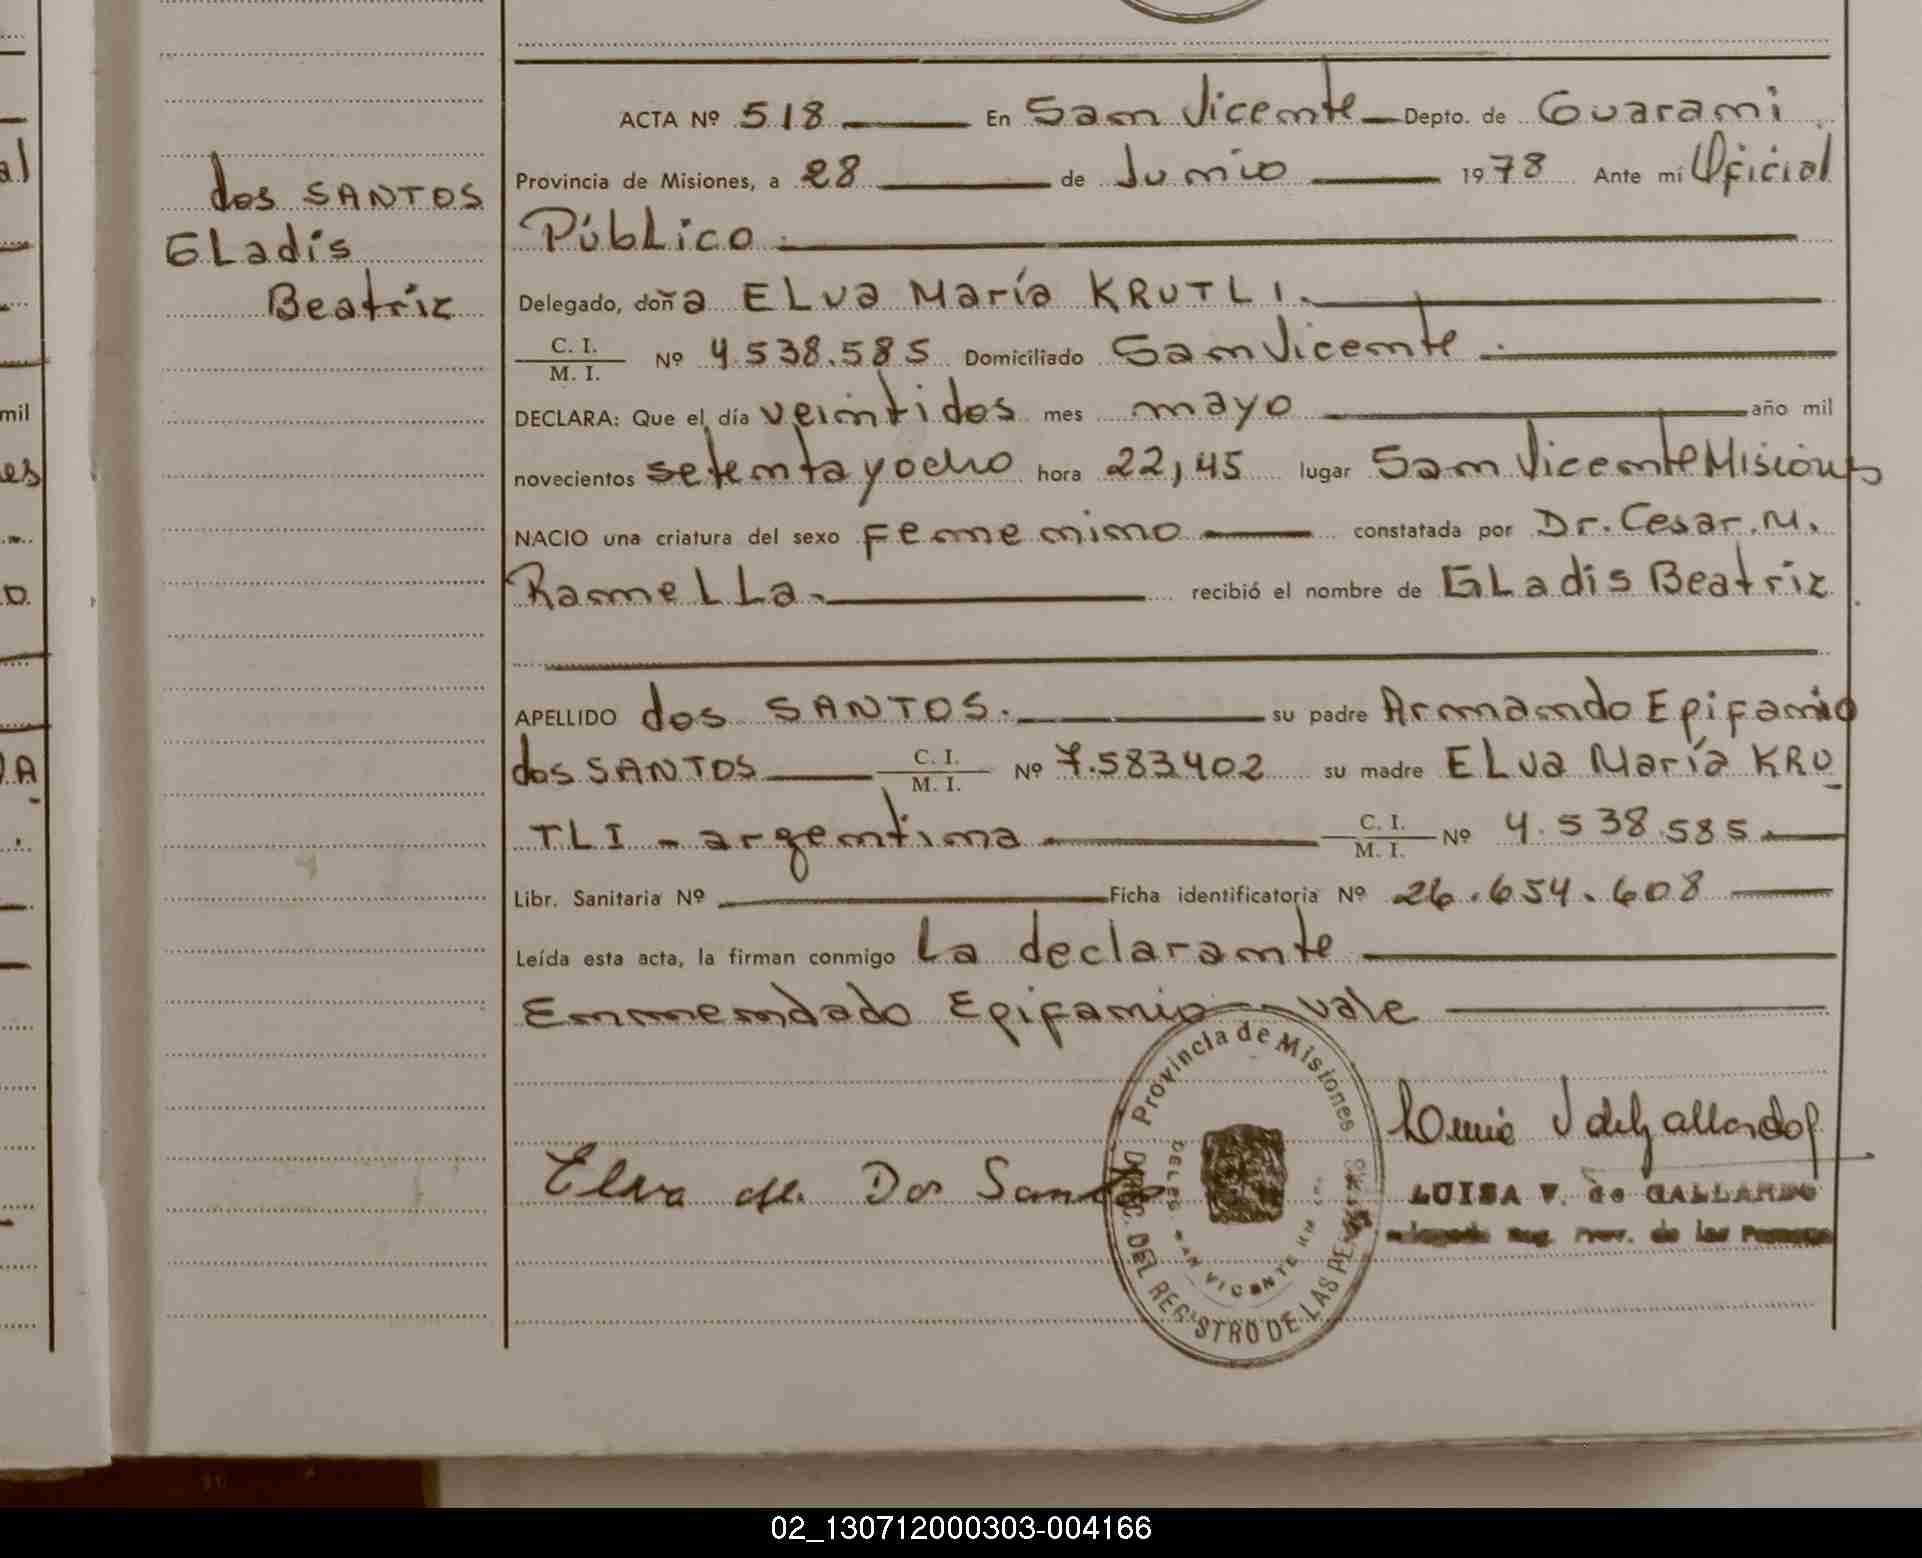 dos SANTOS
GLadis
Beatriz
ACTA Nº 518 En San Vicente Depto. de Guarani
Provincia de Misiones, a 28 de Junio 1978 Ante mi Oficial
PúbLico.
Delegado, doña ELva María KRUTLI.
C. I.
M. I. Nº 4.538.585 Domiciliado San Vicente.
DECLARA: Que el día veintidos mes mayo año mil
novecientos setenta y ocho hora 22,45 lugar San Vicente Misiones
NACIO una criatura del sexo femenino constatada por Dr. Cesar. M.
RameLLa. recibió el nombre de GLadis Beatriz
APELLIDO dos SANTOS. su padre Armando Epifanio
dos SANTOS C. I.
M. I. Nº 7.583402 su madre ELva María KRU
TLI - argentina C. I.
M. I. Nº 4.538.585
Libr. Sanitaria Nº Ficha identificatoria Nº 26.654.608
Leída esta acta, la firman conmigo La declarante
Enmendado Epifanio - vale
Provincia de Misiones
DEL REGISTRO DE LAS
SAN VICENTE
Elva de Dos Santos
LUISA V. de GALLARDO
Reg. Prov. de las Personas
mil
es
02_130712000303-004166